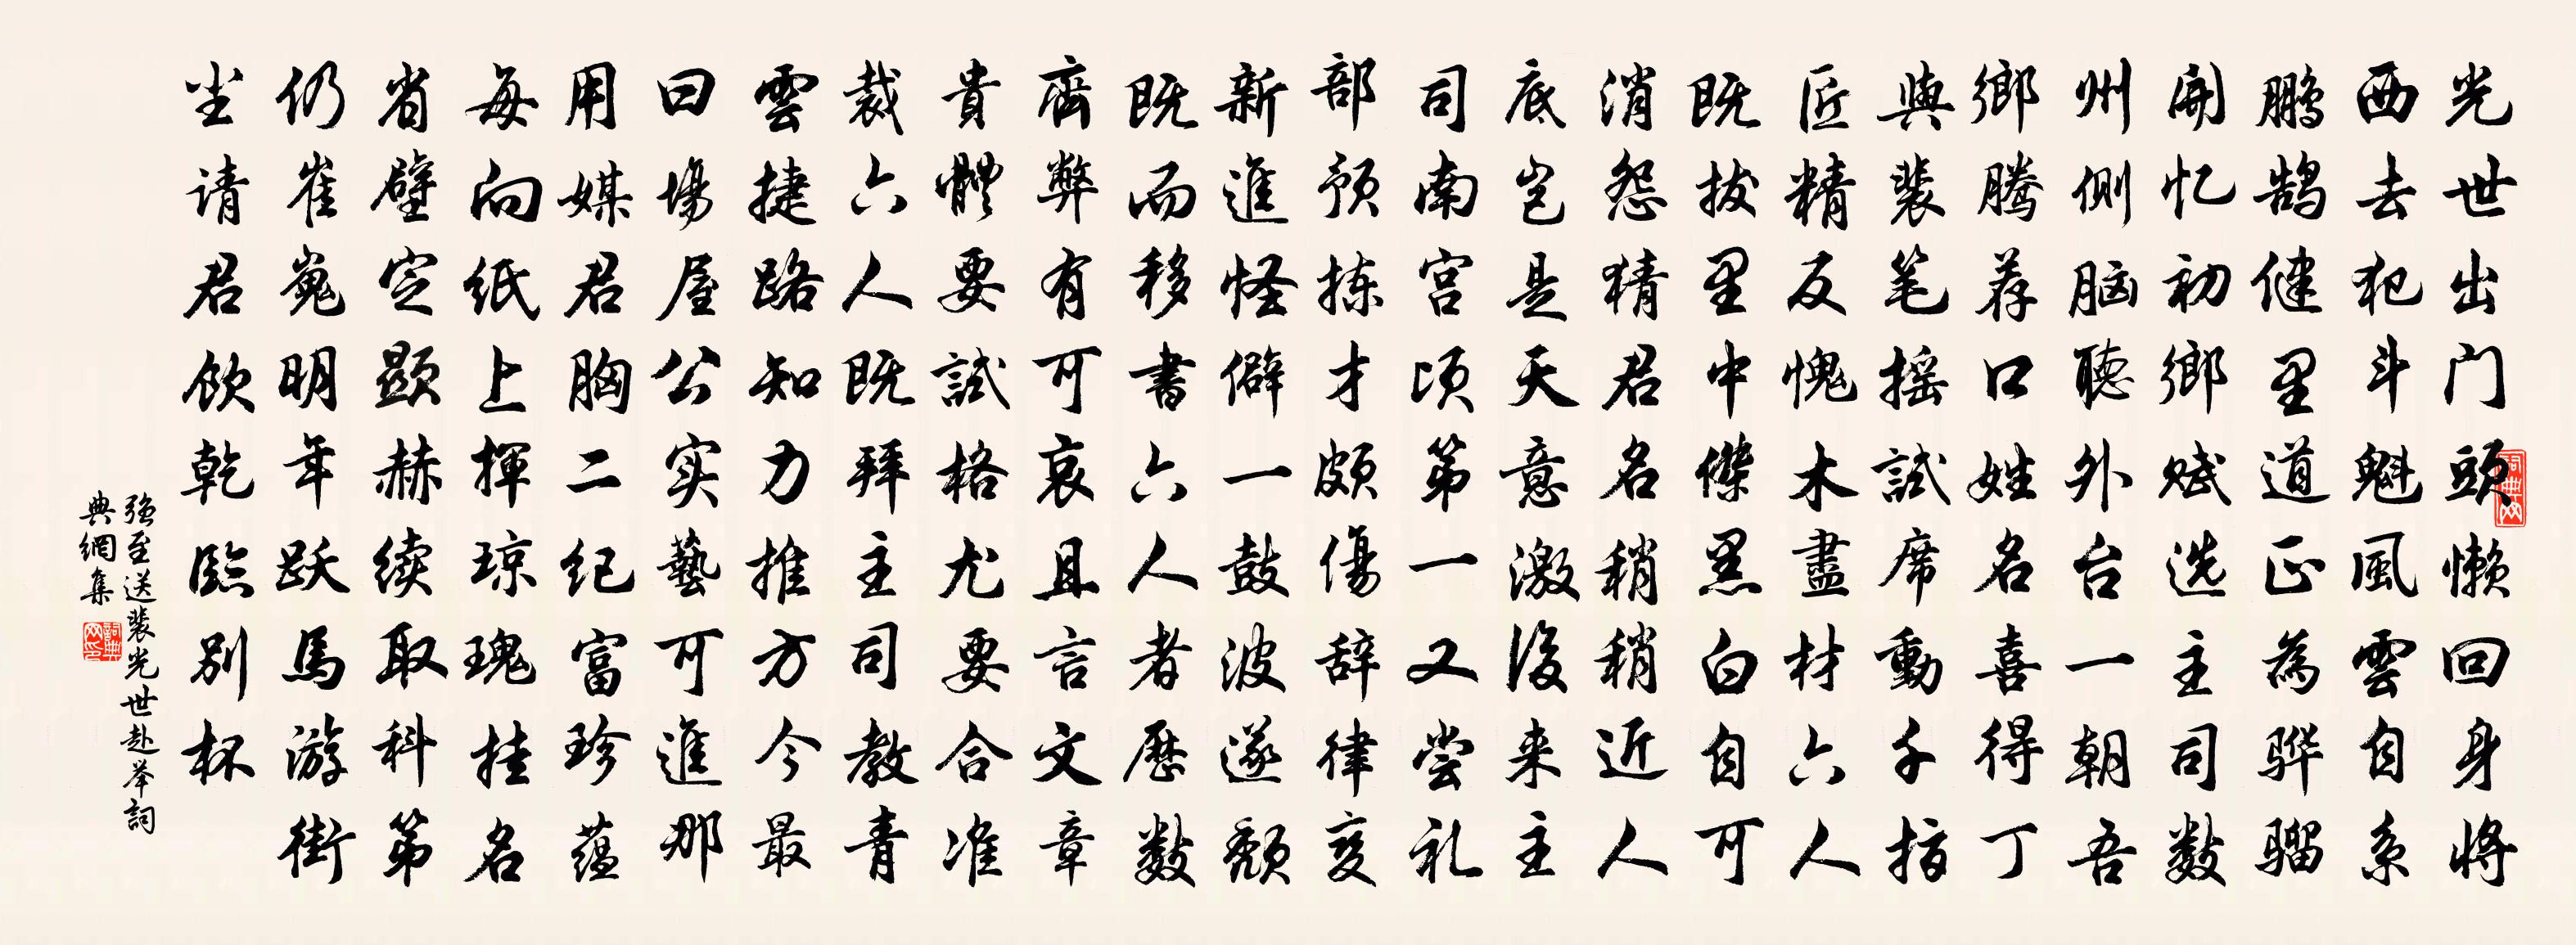 光世出门頭懒回身将
西去犯斗魁風雲自系
鹏鹄健里道正為骅骝
開忆初鄉赋选主司数
州侧脑聴外台一朝吾
鄉腾荐口姓名喜得丁
與裴笔摇試席動千指
匠精反愧木盡材六人
既拔里中傑黑白自可
消怨猜君名稍稍近人
底岂是天意激後来主
司南宫顷第一又尝礼
部预拣才颇傷辞律变
新進怪僻一鼓波遂颓
既而移書六人者歷数
齊弊有可哀且言文章
貴體要試格尤要合准
裁六人既拜主司教青
雲捷路知力推方今最
曰場屋公实藝可進那
用媒君胸二纪富珍蕴
每向纸上揮琼瑰挂名
省壁定顕赫续取科第
仍崔嵬明年跃馬游街
坐请君飲乾臨别杯
强至送裴光世赴举詞
典網集
詞典网
詞典网印